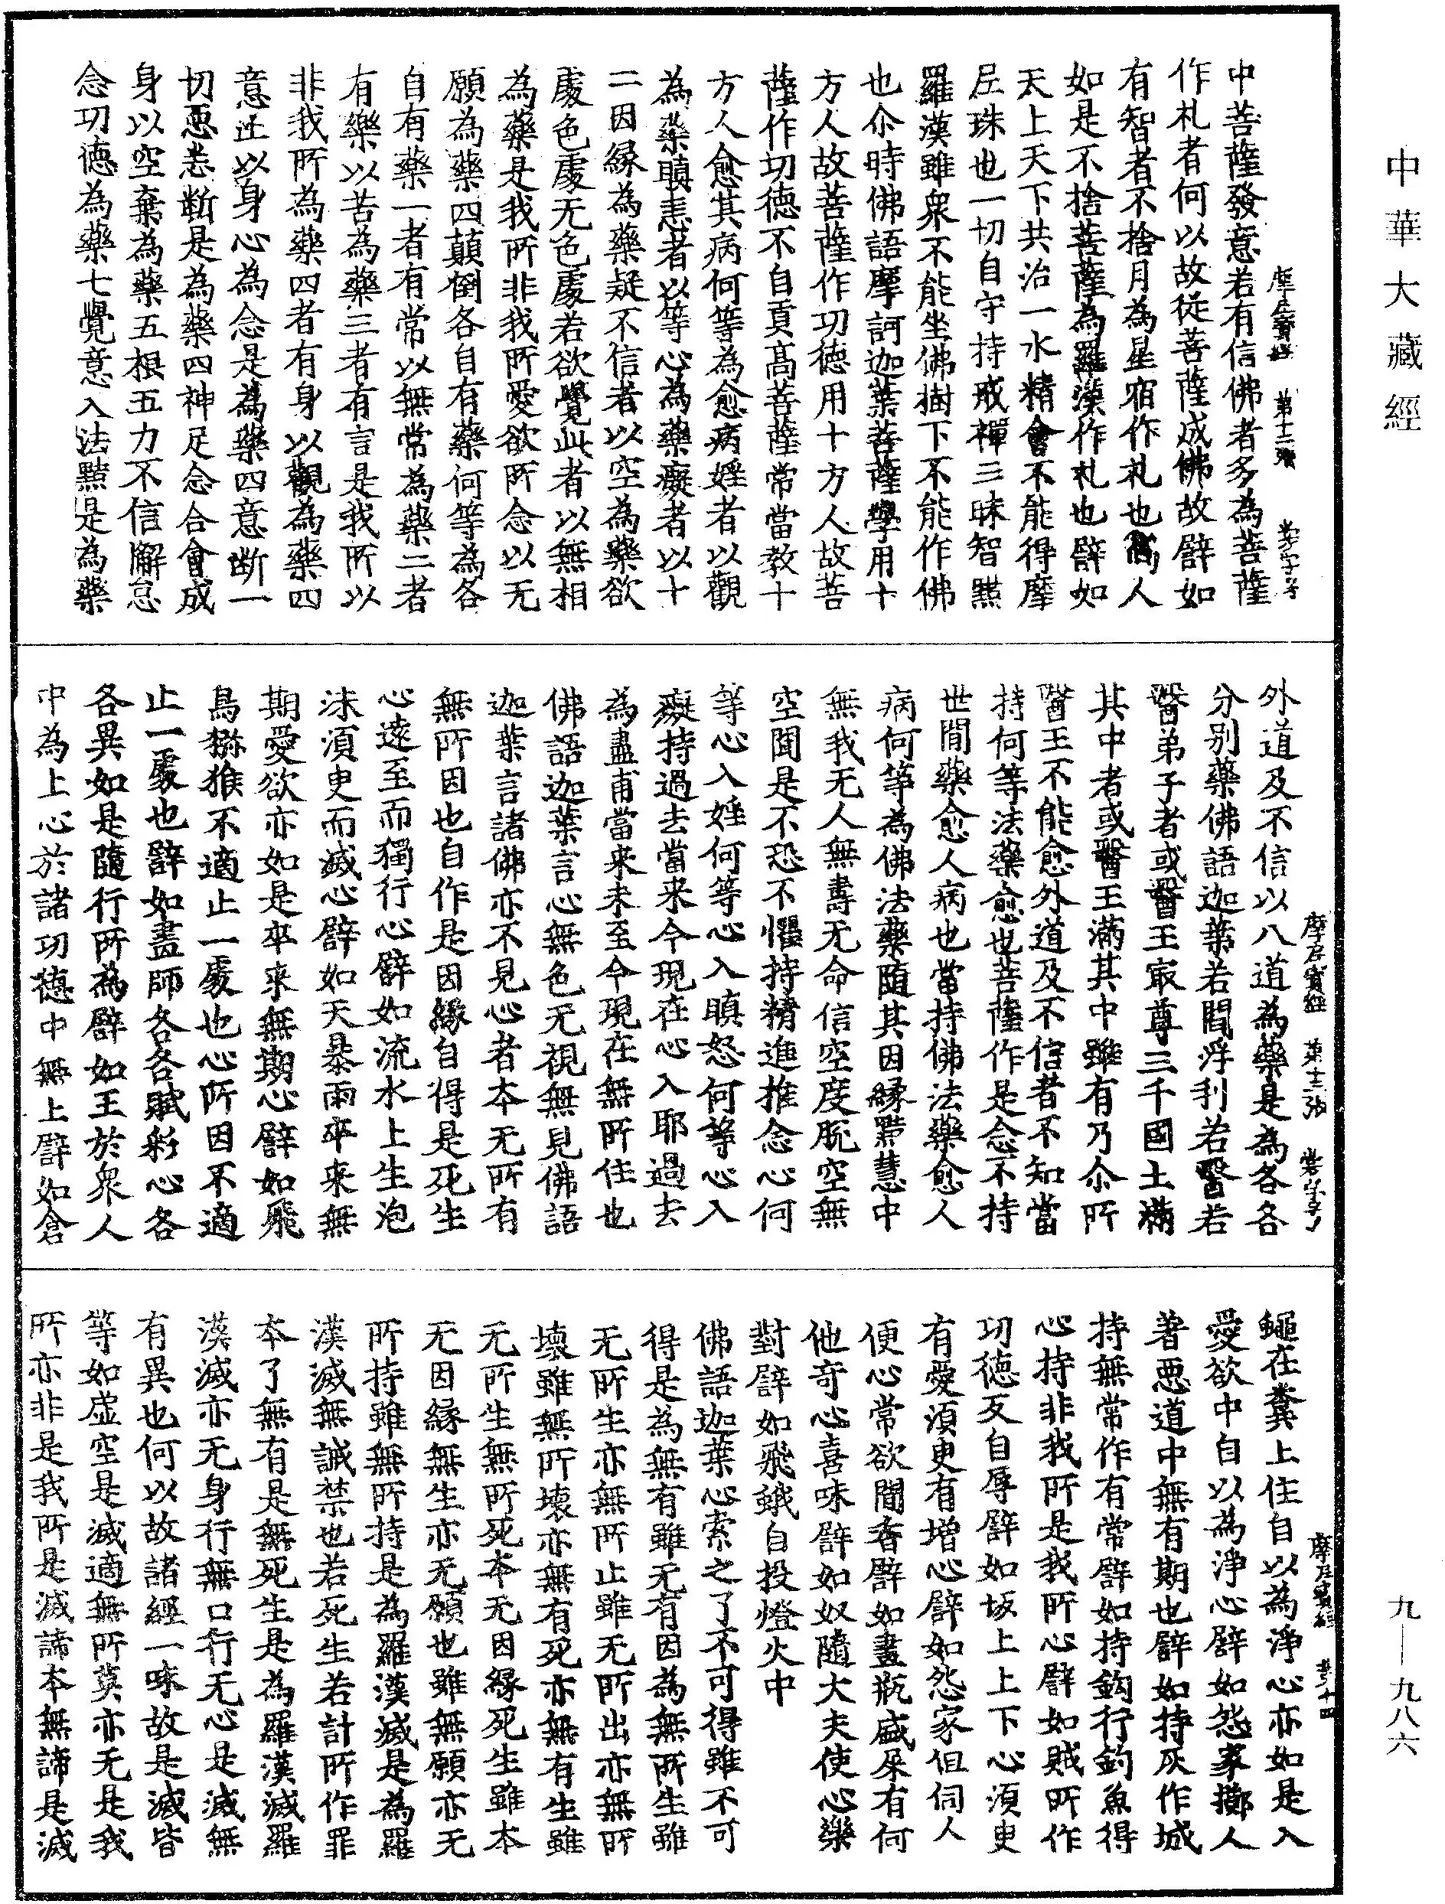 中華大藏經
中菩薩發意若有信佛者多為菩薩
作礼者何以故従菩薩成佛故譬如
有智者不捨月為星宿作礼也髙人
如是不捨菩薩為羅漢作礼也譬如
天上天下共治一水精會不能得摩
𡰱珠也一切自守持戒禪三昧智黠
羅漢雖衆不能坐佛樹下不能作佛
也尒時佛語摩訶迦葉菩薩學用十
方人故菩薩作功德用十方人故菩
薩作功德不自貢髙菩薩常當教十
方人愈其病何等為愈病婬者以觀
為藥瞋恚者以等心為藥癡者以十
二因緣為藥疑不信者以空為藥欲
處色處无色處若欲覺此者以無相
為藥是我所非我所愛欲所念以无
願為藥四顛倒各自有藥何等為各
自有藥一者有常以無常為藥二者
有樂以苦為藥三者有言是我所以
非我所為藥四者有身以觀為藥四
意止以身心為念是為藥四意断一
切惡悉斷是為藥四神足念合會成
身以空棄為藥五根五力不信懈怠
念功德為藥七覺意入法黠是為藥
摩尼寶經 第十二張
外道及不信以八道為藥是為各各
分別藥佛語迦葉若閻浮利若醫若
醫弟子者或醫王㝡尊三千國土滿
其中者或醫王滿其中雖有乃尒所
醫王不能愈外道及不信者不知當
持何等法藥愈也菩薩作是念不持
世間藥愈人病也當持佛法藥愈人
病何等為佛法藥随其因緣黠慧中
無我无人無壽无命信空度脫空無
空聞是不恐不懼持精進推念心何
等心入婬何等心入瞋怒何等心入
癡持過去當来今現在心入耶過去
為盡甫當來未至今現在無所住也
佛語迦葉言心無色无視無見佛語
迦葉言諸佛亦不見心者本无所有
無所因也自作是因緣自得是死生
心遠至而獨行心譬如流水上生泡
沫須臾而滅心譬如天暴雨卒来無
期愛欲亦如是卒来無期心譬如飛
鳥獼猴不適止一處也心所因不適
止一處也譬如畫師各各賦彩心各
各異如是隨行所為譬如王於衆人
中為上心於諸功德中無上譬如倉
摩尼寶經 第十三張
蠅在糞上住自以為淨心亦如是入
愛欲中自以為淨心譬如怨家擲人
著惡道中無有期也譬如持灰作城
持無常作有常譬如持鈎行釣魚得
心持非我所是我所心譬如賊所作
功德反自辱譬如坂上上下心須臾
有愛須臾有增心譬如怨家但伺人
便心常欲聞香譬如畫瓶盛屎有何
他奇心喜味譬如奴隨大夫使心樂
對譬如飛蛾自投燈火中
佛語迦葉心索之了不可得雖不可
得是為無有雖无有因為無所生雖
无所生亦無所止雖无所出亦無所
壞雖無所壞亦無有死亦無有生雖
无所生無所死本无因緣死生雖本
无因緣無生亦无願也雖無願亦无
所持雖無所持是為羅漢滅是為羅
漢滅無誡禁也若死生若計所作罪
本了無有是無死生是為羅漢滅羅
漢滅亦无身行無口行无心是滅無
有異也何以故諸經一味故是滅皆
等如虛空是滅適無所莫亦无是我
所亦非是我所是滅諦本無諦是滅
摩尼寶經 第十四
九—九八六